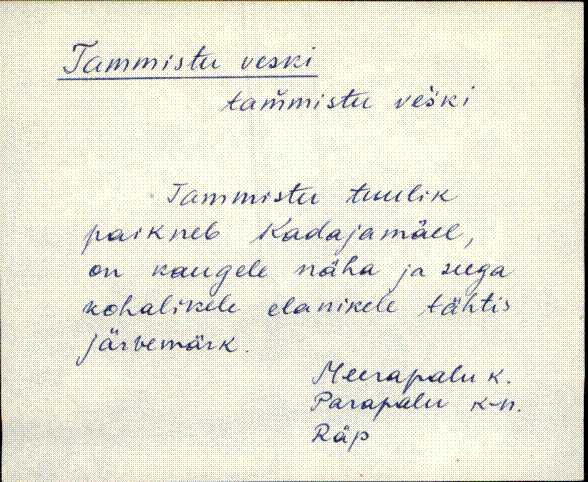 Tammistu veski
tam̆mistu ves̆ki
Tammistu tuulik
paikneb Kadajamäel,
on kaugele näha ja seega
kohalikele elanikele tähtis
järvemärk.
Meerapalu k.
Parapalu k-n.
Räp